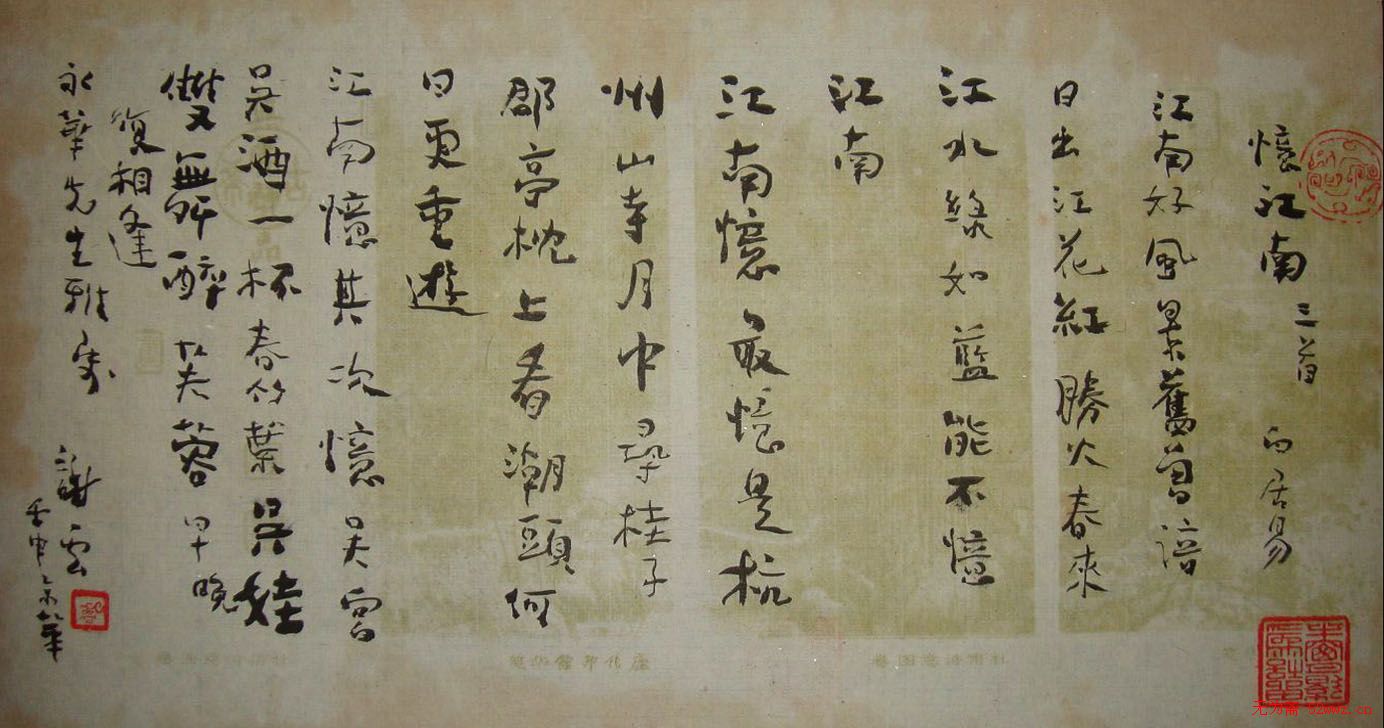 憶江南 三首 白居易
江南好風景舊曾諳
日出江花紅勝火春來
江水綠如藍能不憶
江南
江南憶最憶是杭
州山寺月中尋桂子
郡亭枕上看潮頭何
日更重遊
江南憶其次憶吳宮
吳酒一杯春竹葉吳娃
雙舞醉芙蓉早晚
復相逢
永華先生雅
謝雲
壬申
无为斋 52wwz.cn